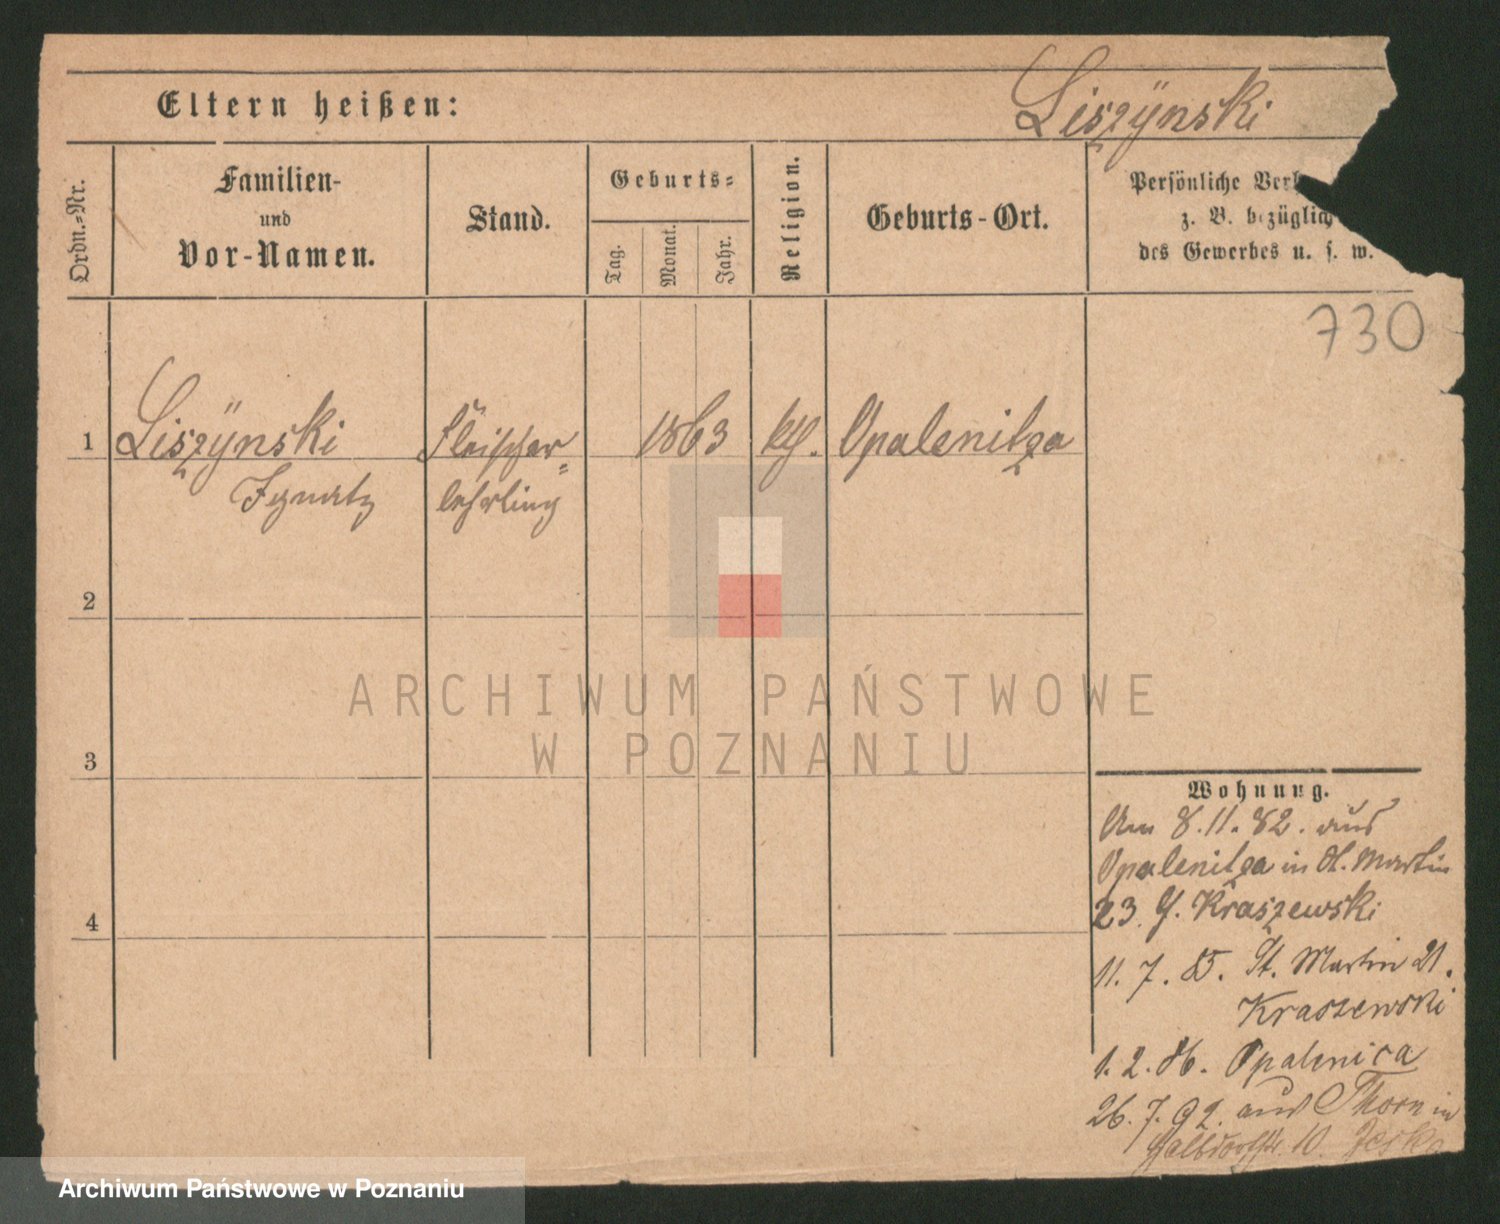 Eltern heißen:
Liszÿnski
Ordn.-Nr.
Familien-
und
Vor-Namen.
Stand.
Geburts-
Tag.
Monat.
Jahr.
Religion.
Geburts-Ort.
Persönliche
z. B. bezüglich
des Gewerbes u. s. w.
730
1 Liszÿnski Fleischer= 1863 kth. Opalenitza
Ignatz lehrling
2
3
4
ARCHIWUM PAŃSTWOWE
W POZNANIU
Wohnung.
Am 8.11.82. aus
Opalenitza in St. Martin
23. Kraszewski
11. 7. 85. St. Martin 21.
Kraszewski
1. 2. 86. Opalenica
26. 7. 92. aus Thorn in
Halbdorfstr. 10.
Archiwum Państwowe w Poznaniu